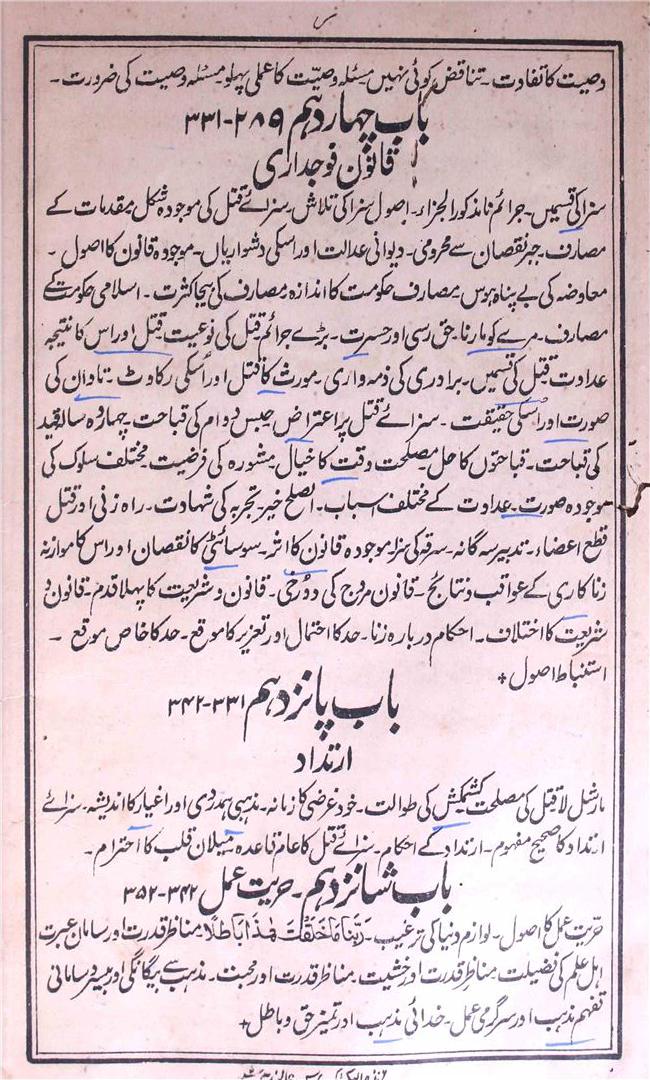 وصیت کا تفاوت۔ تناقض کوئی نہیں۔ مسئلہ وصیّت کا عملی پہلو۔ مسئلہ وصیت کی ضرورت۔
باب چہاردہم ۲۸۹-۳۳۱
قانون فوجداری
سزا کی قسمیں۔ جرائم نامذکور الجزاء۔ اصول سزا کی تلاش۔ سزائے قتل کی موجودہ شکل مقدمات کے
مصارف۔ جبر نقصان سے محرومی۔ دیوانی عدالت اور اسکی دشواریاں۔ موجودہ قانون کا اصول۔
معاوضہ کی بے پناہ ہوس۔ مصارف حکومت کا اندازہ مصارف کی بیجا کثرت۔ اسلامی حکومت کے
مصارف۔ مرے کو مارنا۔ حق رسی اور حسرت۔ بڑے جرائم قتل کی نوعیت۔ قتل اور اس کا نتیجہ
عداوت قتل کی قسمیں۔ برادری کی ذمہ واری۔ مورث کا قتل اور اُسکی رکاوٹ۔ تاوان کی
صورت اور اُسکی حقیقت۔ سزائے قتل پر اعتراض حبس دوام کی قباحت۔ چہاردہ سالہ قید
کی قباحت۔ قباحتوں کا حل۔ مصلحت وقت کا خیال۔ مشورہ کی فرضیت۔ مختلف سلوک کی
موجودہ صورت۔ عداوت کے مختلف اسباب۔ الصلح خیر۔ تجربہ کی شہادت۔ راہ زنی اور قتل
قطع اعضاء۔ تدبیر سہ گانہ۔ سرقہ کی سزا۔ موجودہ قانون کا اثر۔ سوسائٹی کا نقصان اور اس کا موازنہ
زناکاری کے عواقب و نتائج۔ قانون مروج کی دورُخی۔ قانون و شریعت کا پہلا قدم۔ قانون و
شریعت کا اختلاف۔ احکام دربارہ زنا۔ حد کا احتمال اور تعزیر کا موقع۔ حد کا خاص موقع۔
استنباط اصول +
باب پانزدہم ۳۳۱-۳۴۲
ارتداد
مارشل لا قتل کی مصلحت کشمکش کی طوالت۔ خود غرضی کا زمانہ۔ مذہبی ہمدردی اور اغیار کا اندیشہ۔ سزائے
ارتداد کا صحیح مفہوم۔ ارتداد کے احکام۔ سزائے قتل کا عام قاعدہ میلان قلب کا احترام۔
باب شانزدہم۔ حریت عمل ۳۴۲-۳۵۲
حرّیت عمل کا اصول۔ لوازم دنیا کی ترغیب۔ رَبَّنَا مَا خَلَقْتَ هٰذَا بَاطِلًا۔ مناظر قدرت اور سامان عبرت
اہل علم کی فضیلت مناظر قدرت اور خشیت۔ مناظر قدرت اور محبت۔ مذہب سے بیگانگی اور بے سر و سامانی
تفہم مذہب اور سرگرمی عمل۔ خدائی مذہب اور تمیز حق و باطل +